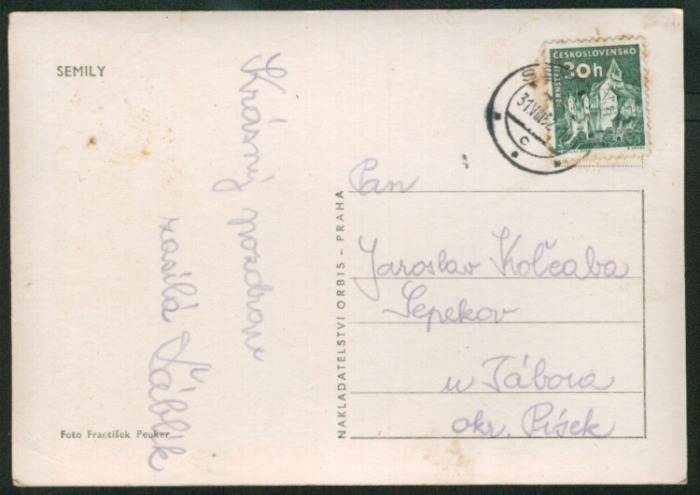 SEMILY
Krásný pozdrav
zasílá Šáblík
Foto František Peuker
NAKLADATELSTVÍ ORBIS - PRAHA
ČESKOSLOVENSKO
30h
31.VIII
C
Pan
Jaroslav Kolčaba
Sepekov
u Tábora
okr. Písek